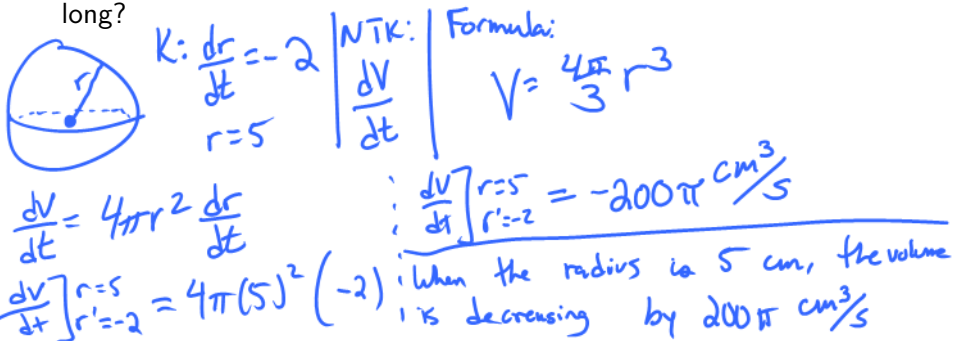 long?
r
K: dr/dt = -2 | NTK: | Formula:
r=5 | dV/dt | V = 4π/3 r³
dV/dt = 4πr² dr/dt
dV/dt] r=5 r'=-2 = 4π(5)² (-2)
dV/dt] r=5 r'=-2 = -200π cm³/s
When the radius is 5 cm, the volume
is decreasing by 200π cm³/s